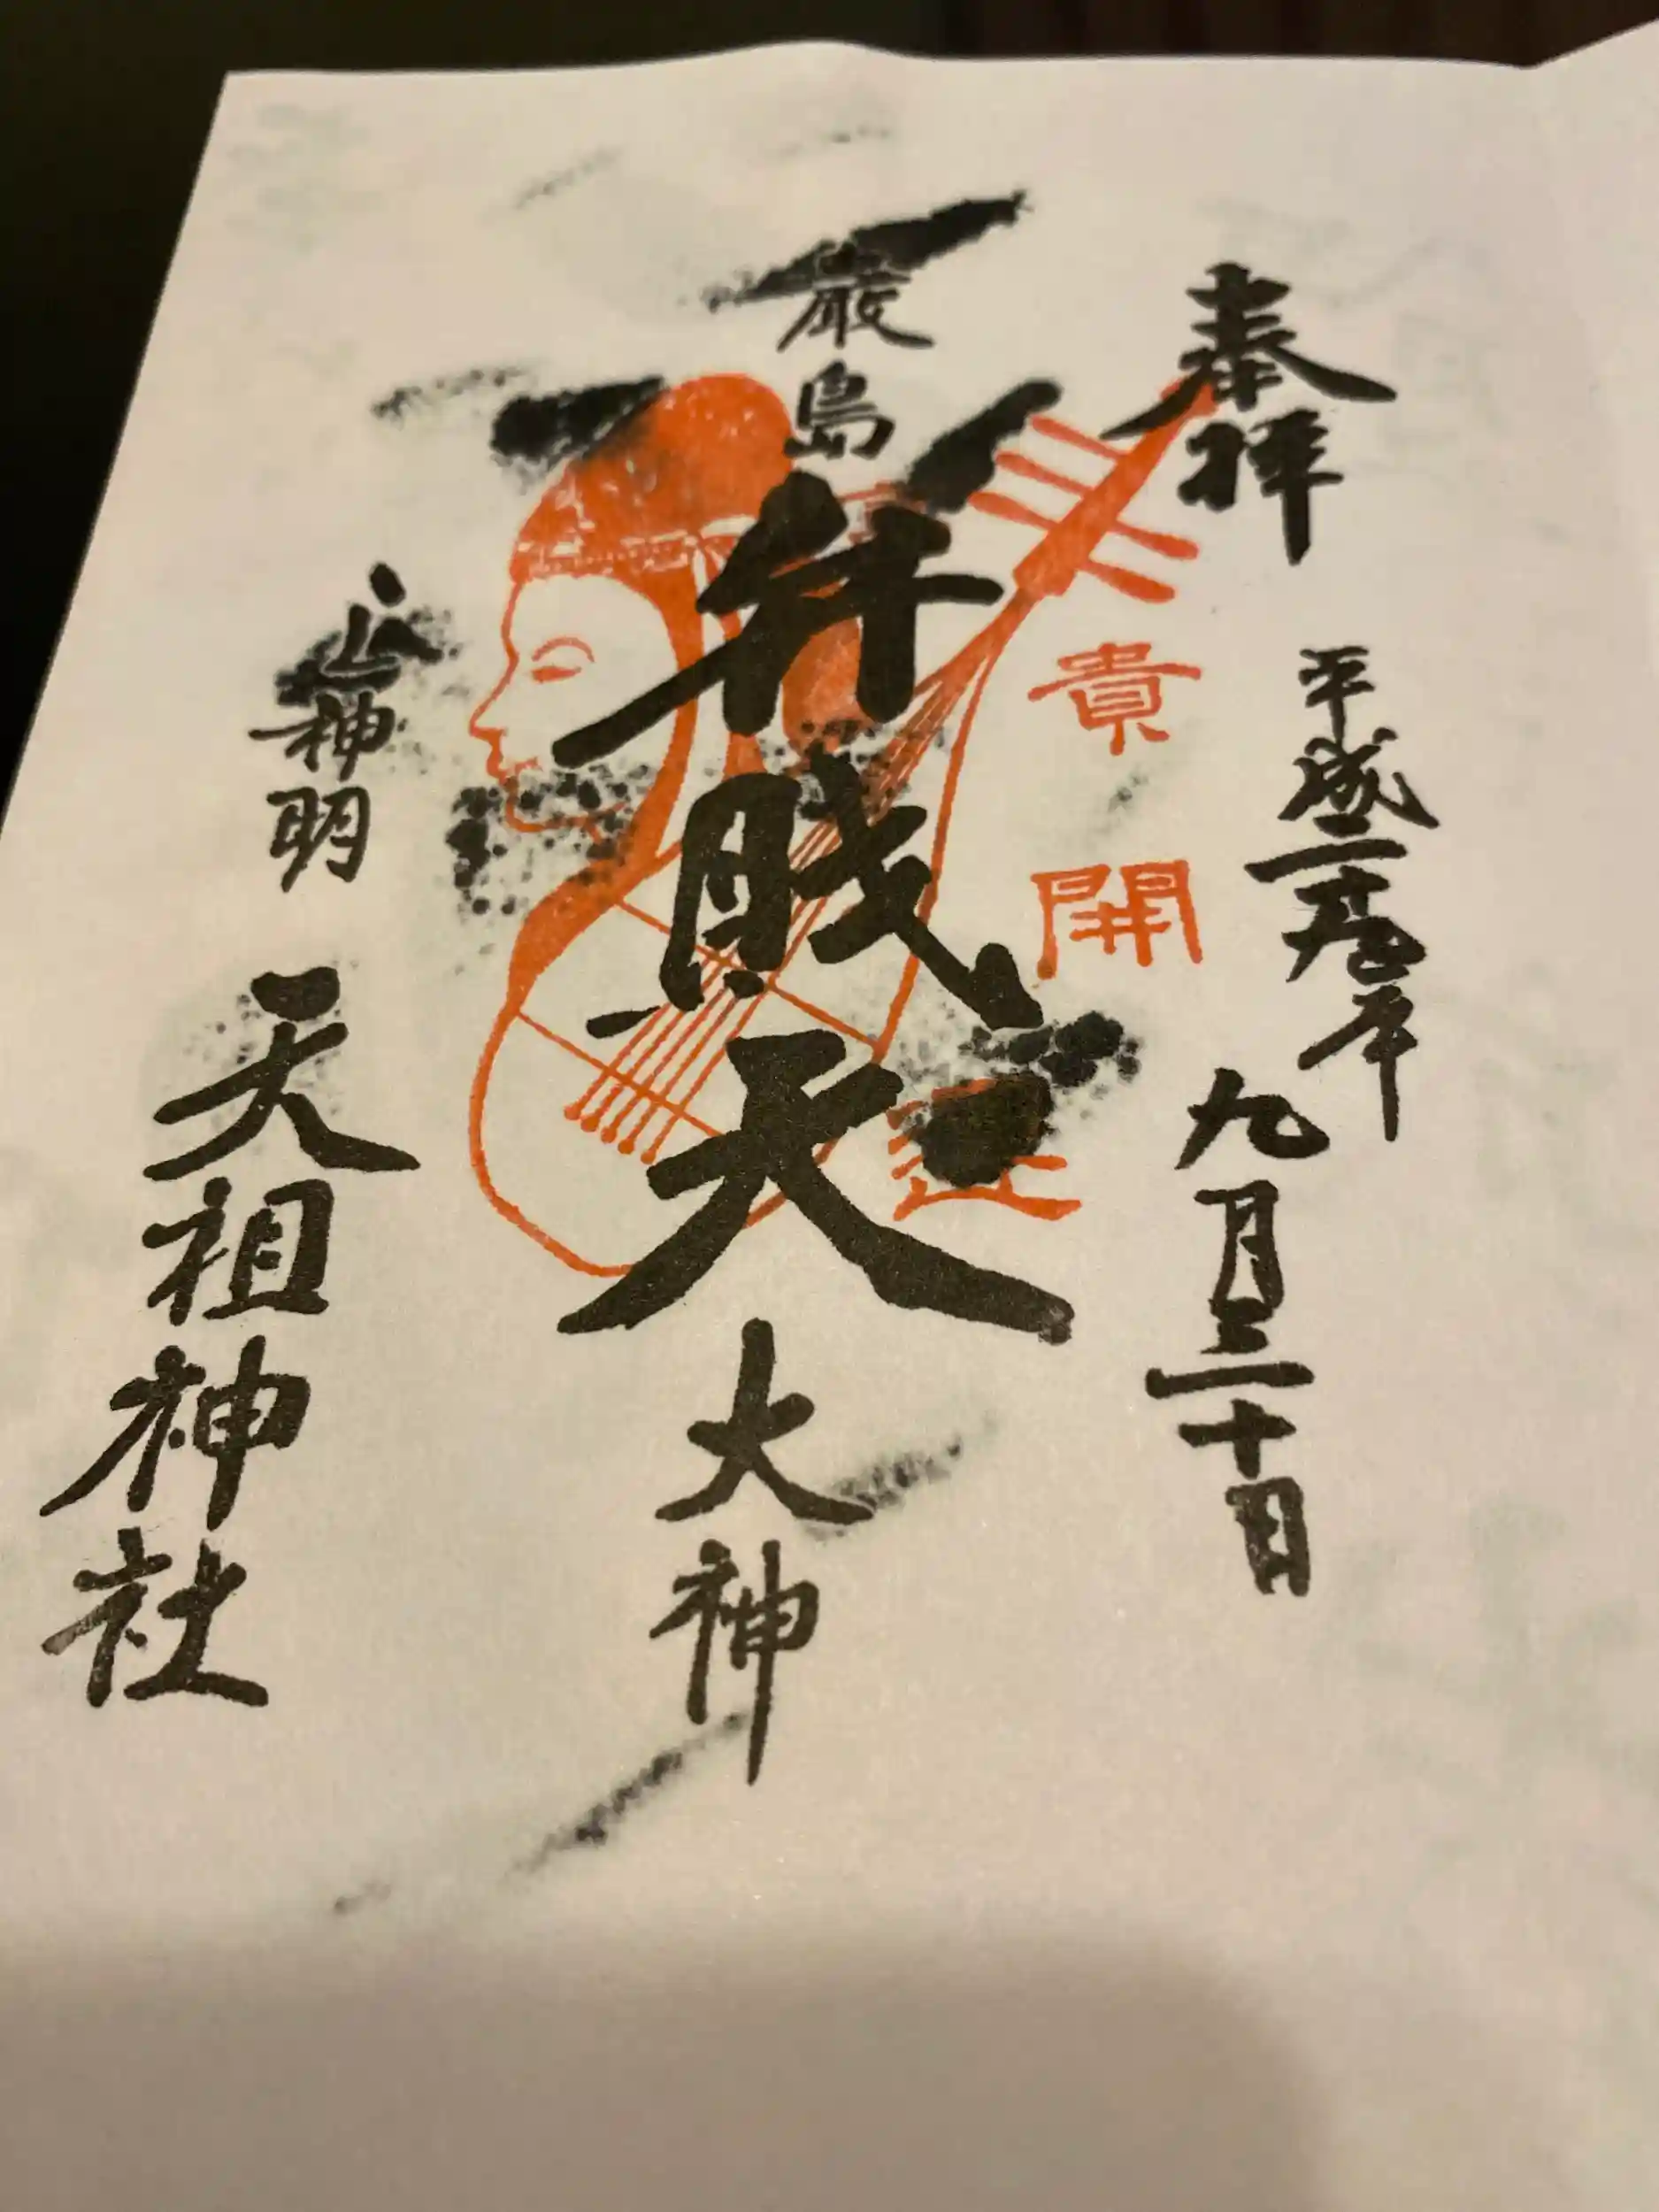 奉拝
平成二十九年
九月三十日
貴開運
厳島
弁財天
大神
上神明
天祖神社